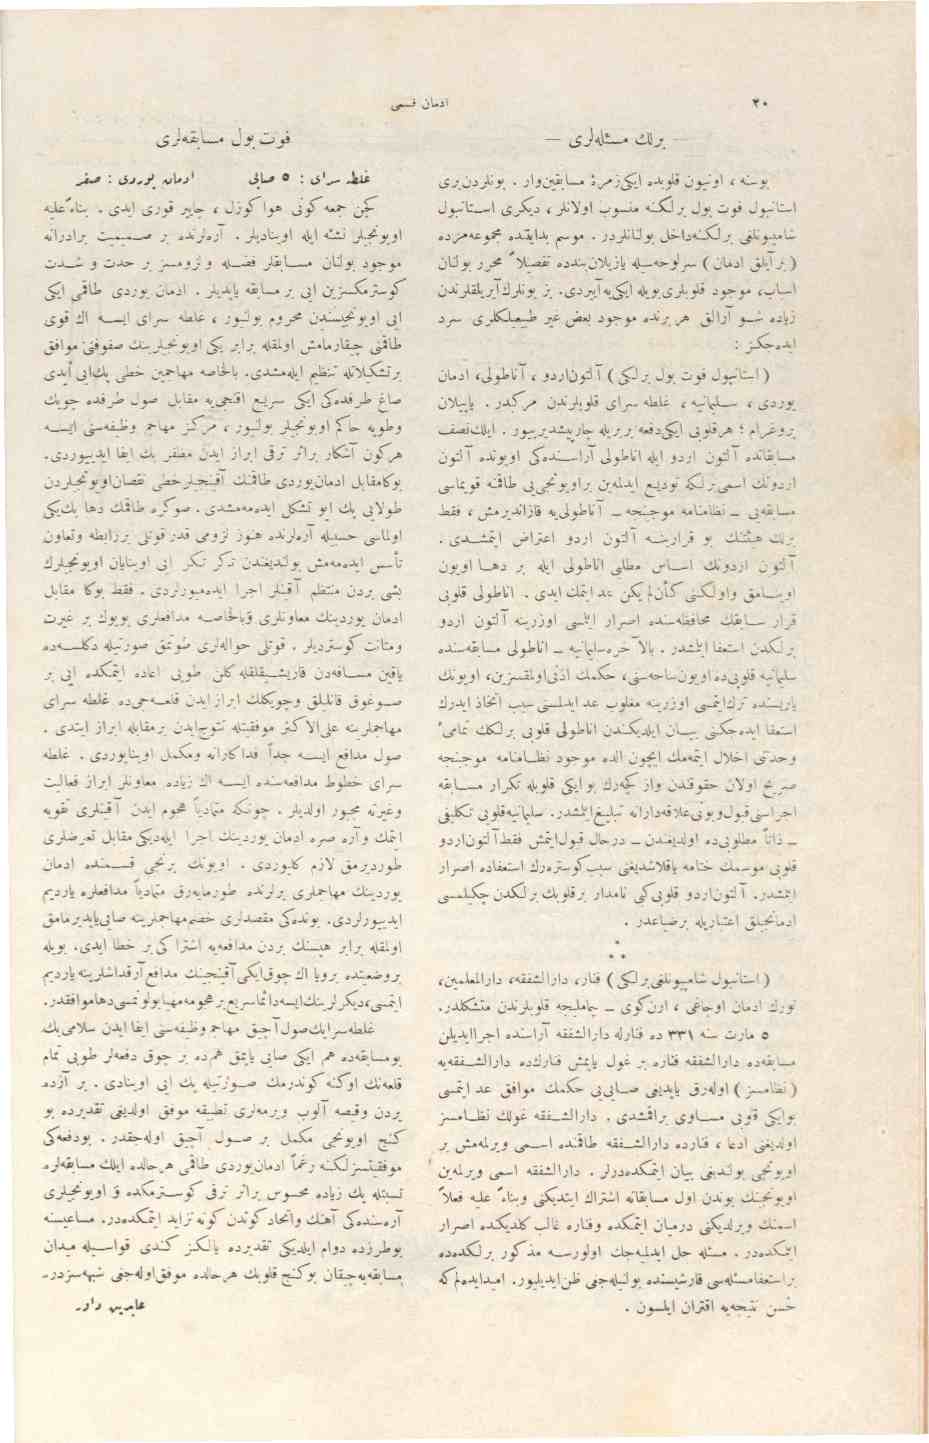 ٢٠
ادمان قسمی
— برلك مسئله‌لری —
بوسنه ، اونیون قلوبده ایكی زمرهٔ مسابقین‌وار . بونلردن بری
استانبول فوت بول برلكنه منسوب اولانلر ، دیكری استانبول
شامپیونلغی برلكنه‌داخل بولنانلردر . موسم بدایتنده مجموعه‌مزده
( بر آیلق ادمان ) سرلوحه‌سیله یازیلان‌بندده تفصیلاً محرر بولنان
اسباب، موجود قلوبلری‌بویله ایكی‌یه آییردی. بز بونلرك‌آیریلقلرندن
زیاده شو آرالق هر برنده موجود بعض غیر طبیعیلكلری سرد
ایده‌جكز :
( استانبول فوت بول برلكی ) آلتون‌اردو ، آناطولی، ادمان
یوردی ، سلیمانیه ، غلطه سرای قلوبلرندن مركبدر . یاپیلان
پروغرام ؛ هرقلوبی ایكی‌دفعه بربریله چارپیشدیرییور . ایلك‌نصف
مسابقاتده آلتون اردو ایله اناطولی آراسنده‌كی اویونده آلتون
اردونك اسمی‌برلكه تودیع ایدلمه‌ین براویونجی‌یی طاقمنه قویماسی
مسابقه‌یی — نظامنامه موجبنجه — آناطولی‌یه قازاندیرمش ، فقط
برلك هیئتنك بو قرارینه آلتون اردو اعتراض ایتمشدی .
آلتون اردونك اساس مطلبی اناطولی ایله بر دها اویون
اوینامق واولكنی كأن لم یكن عد ایتمك ایدی . اناطولی قلوبی
قرار سابقك محافظه‌سنده اصرار ایتمسی اوزرینه آلتون اردو
برلكدن استعفا ایتمشدر . بالآخره سلیمانیه — اناطولی مسابقه‌سنده
سلیمانیه قلوبی‌ده اویون‌ساحه‌سنی، حكمك اذنی‌اولمقسزین، اویونك
یاریسنده ترك‌ایتمسی اوزرینه مغلوب عد ایدلمسنی سبب اتخاذ ایدرك
استعفا ایده‌جكنی بیان ایلدیكندن اناطولی قلوبی برلكك تمامیٔ
وحدتی اخلال ایتمه‌مك ایچون الده موجود نظامنامه موجبنجه
صریح اولان حقوقندن واز كچه‌رك بو ایكی قلوبله تكرار مسابقه
اجراسنی قبول‌وبونی‌علاقه‌دارانه تبلیغ‌ایتمشدر. سلیمانیه‌قلوبی تكلیفی
— ذاتاً مطلوبی‌ده اولدیغندن — درحال قبول‌ایتمش فقط آلتون‌اردو
قلوبی موسمك ختامه یاقلاشدیغنی سبب‌كوستره‌رك استعفاده اصرار
ایتمشدر. آلتون‌اردو قلوبی‌كبی نامدار برقلوبك برلكدن چكیلمسی
ادمانجیلق اعتباریله برضیاعدر .
*
* *
( استانبول شامپیونلغی برلكی ) فنار، دارالشفقه، دارالمعلمین،
تورك ادمان اوجاغی ، ارن‌كوی — چاملیجه قلوبلرندن متشكلدر.
٥ مارت سنه ٣٣١ ده فنارله دارالشفقه آراسنده اجراایدیلن
مسابقه‌ده دارالشفقه فناره بر غول یاپمش فنارك‌ده دارالشفقه‌یه
( نظامسز ) اوله‌رق یاپدیغی صاییی‌یی حكمك موافق عد ایتمسی
بوایكی قلوبی مساوی براقمشدی . دارالشفقه غولك نظامسز
اولدیغنی ادعا ، فنارده دارالشفقه طاقمنده اسمی ویرلمه‌مش بر
اویونجی بولندیغنی بیان ایتمكده‌درلر . دارالشفقه اسمی ویرلمه‌ین
اویونجینك بوندن اول مسابقاته اشتراك ایتدیكنی وبناءً علیه فعلاً
اسمنك ویرلدیكنی درمیان ایتمكده وفناره غالب كلدیكنده اصرار
ایتمكده‌در. مسئله حل ایدلمیه‌جك اولورسه مذكور برلكده‌ده
براستعفامسئله‌سی قارشیسنده بولنیله‌جغی ظن‌ایدیلیور. امیدایده‌لم كه
حسن نتیجه‌یه اقتران ایلسون .
فوت بول مسابقه‌لری
غلطه سرای : ٥ صایی ادمان یوردی : صفر
كچن جمعه كونی هوا كوزل ، چایر قوری ایدی . بناءً علیه
اویونجیلر نشئه ایله اوینادیلر . آره‌لرنده بر صمیمیت برادرانه
موجود بولنان مسابقلر فضله ولزومسز بر حدت و شدت
كوسترمكسزین ایی بر مسابقه یاپدیلر . ادمان یوردی طاقمی ایكی
ایی اویونجیسندن محروم بولنیور ، غلطه سرای ایسه اك قوی
طاقمنی چیقارمامش اولمقله برابر یكی اویونجیلرینك صفوفنی موافق
برتشكیلاتله تنظیم ایله‌مشدی. بالخاصه مهاجمین خطی پك‌ایی ایدی
صاغ طرفده‌كی ایكی سریع اقنجی‌یه مقابل صول طرفده چویك
وطوپه حاكم اویونجیلر بولنیور ، مركز مهاجم وظیفه‌سنی ایسه
هركون آشكار براثر ترقی ابراز ایدن مظفر بك ایفا ایدییوردی.
بوكامقابل ادمان‌یوردی طاقمنك آقینجیلرخطی نقصان‌اویونجیلردن
طولایی پك ایو تشكل ایده‌مه‌مشدی . صوكره طاقمك دها پك‌یكی
اولماسی حسبیله آره‌لرنده هنوز لزومی قدر قوتلی بررابطه وتعاون
تأسس ایده‌مه‌مش بولندیغندن تك تك ایی اوینایان اویونجیلرك
بشی بردن منتظم آقینلر اجرا ایده‌میورلردی . فقط بوكا مقابل
ادمان یوردینك معاونلری وبالخاصه مدافعلری بویوك بر غیرت
ومتانت كوستردیلر . قوتلی حواله‌لری طوتمق صورتیله دكلسه‌ده
یاقین مسافه‌دن قاریشیقلقله كلن طوپی اعاده ایتمكده ایی بر
صوغوق قانلیلق وچویكلك ابرازایدن قلعه‌جی‌ده غلطه سرای
مهاجملرینه علی الاكثر موفقیتله تتوج‌ایدن برمقابله ابراز ایتدی .
صول مدافع ایسه جداً فداكارانه ومكمل اوینایوردی . غلطه
سرای خطوط مدافعه‌سنده ایسه اك زیاده معاونلر ابراز فعالیت
وغیرته مجبور اولدیلر . چونكه متمادیاً هجوم ایدن آقینلری تقویه
ایتمك وآره صره ادمان یوردینك اجرا ایله‌دیكی مقابل تعرضلری
طوردیرمق لازم كلیوردی . اویونك برنجی قسمنده ادمان
یوردینك مهاجملری یرلرنده طورمایه‌رق متمادیاً مدافعلره یاردیم
ایدییورلردی. بونده‌كی مقصدلری خصم‌مهاجملرینه صایی‌یاپدیرمامق
اولمقله برابر هپسنك بردن مدافعه‌یه اشتراكی بر خطا ایدی. بویله
بروضعیتده برویا اك چوق‌ایكی آقینجینك مدافع آرقداشلرینه یاردیم
ایتمسی،دیكرلرینك‌ایسه‌دائماسریع برهجومه‌مهیابولونمسی‌دهاموافقدر.
غلطه‌سرایك‌صول آچیق مهاجم وظیفه‌سنی ایفا ایدن سلامی بك
بومسابقه‌ده هم ایكی صایی یاپمق هم‌ده بر چوق دفعه‌لر طوپی تمام
قلعه‌نك اوكنه كوندرمك صورتیله پك ایی اوینادی . بر آزده
یردن وقیصه آلوب ویرمه‌لری تطبیقه موفق اولدیغی تقدیرده بو
كنج اویونجی مكمل بر صول آچیق اوله‌جقدر. بودفعه‌كی
موفقیتسزلكنه رغماً ادمان‌یوردی طاقمی هرحالده ایلك مسابقه‌لره
نسبتله پك زیاده محسوس براثر ترقی كوسترمكده و اویونجیلری
آره‌سنده‌كی آهنك واتحاد كوندن كونه تزاید ایتمكده‌در. مساعیسنه
بوطرزده دوام ایلدیكی تقدیرده یالكز كندی قواسیله میدان
مسابقه‌یه‌چیقان بوكنج قلوبك هرحالده موفق‌اوله‌جغی شبهه‌سزدر.
عابدین داور